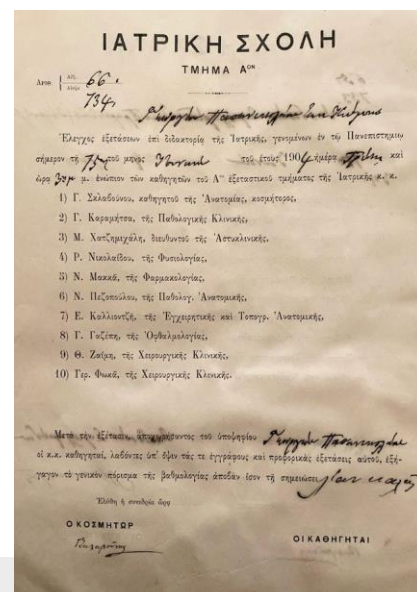 ΙΑΤΡΙΚΗ ΣΧΟΛΗ
ΤΜΗΜΑ Α^ΟΝ
Αριθ. 66.
734
Γεωργίου Παπανικολάου εκ Κύμης
Ἔλεγχος ἐξετάσεων ἐπὶ διδακτορίᾳ τῆς Ἰατρικῆς, γενομένων ἐν τῷ Πανεπιστημίῳ
σήμερον τῇ 15 τοῦ μηνὸς τοῦ ἔτους 1904 ἡμέρᾳ Τρίτῃ καὶ
ὥρᾳ μ. μ. ἐνώπιον τῶν καθηγητῶν τοῦ Α^ου ἐξεταστικοῦ τμήματος τῆς Ἰατρικῆς κ. κ.
1) Γ. Σκλαβούνου, καθηγητοῦ τῆς Ἀνατομίας, κοσμήτορος,
2) Γ. Καραμήτσα, τῆς Παθολογικῆς Κλινικῆς,
3) Μ. Χατζημιχάλη, διευθυντοῦ τῆς Ἀστυκλινικῆς,
4) Ρ. Νικολαΐδου, τῆς Φυσιολογίας,
5) Ν. Μακκᾶ, τῆς Φαρμακολογίας,
6) Ν. Πεζοπούλου, τῆς Παθολογ. Ἀνατομικῆς,
7) Ε. Καλλιοντζῆ, τῆς Ἐγχειρητικῆς καὶ Τοπογρ. Ἀνατομικῆς,
8) Γ. Γαζέπη, τῆς Ὀφθαλμολογίας,
9) Θ. Ζαΐμη, τῆς Χειρουργικῆς Κλινικῆς,
10) Γερ. Φωκᾶ, τῆς Χειρουργικῆς Κλινικῆς.
Μετὰ τὴν ἐξέτασιν, ἀποχωρήσαντος τοῦ ὑποψηφίου Γεωργίου Παπανικολάου
οἱ κ.κ. καθηγηταί, λαβόντες ὑπ' ὄψιν τάς τε ἐγγράφους καὶ προφορικὰς ἐξετάσεις αὐτοῦ, ἐξή-
γαγον τὸ γενικὸν πόρισμα τῆς βαθμολογίας ἀποβὰν ἴσον τῇ σημειώσει Λίαν καλῶς
Ἐλύθη ἡ συνεδρία ὥρᾳ
Ο ΚΟΣΜΗΤΩΡ
ΟΙ ΚΑΘΗΓΗΤΑΙ